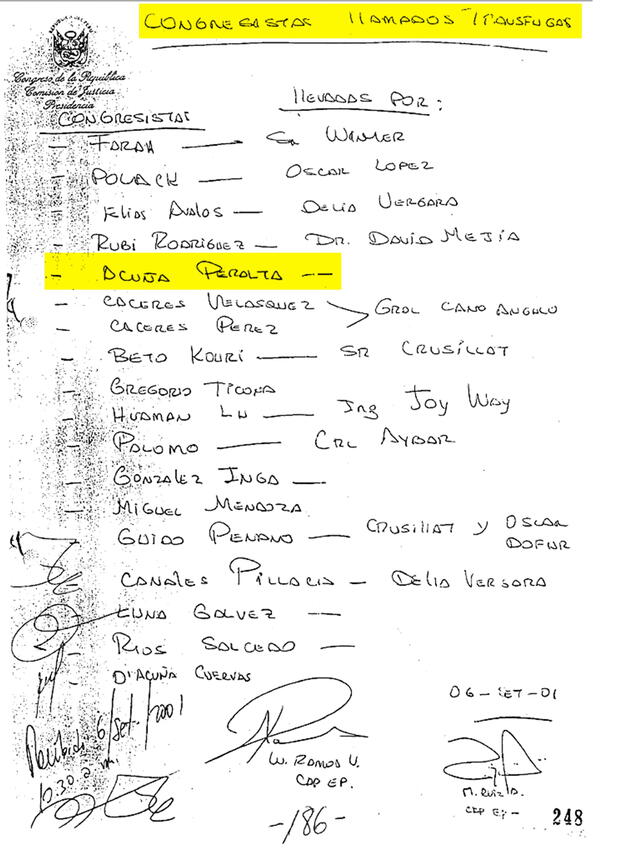 CONGRESISTAS LLAMADOS TRANSFUGAS
Congreso de la República
Comisión de Justicia
Presidencia
CONGRESISTAS LLEVADOS POR:
- FARAH —— Sr WINTER
- POLLACK —— OSCAR LOPEZ
- Elias Avalos — DELIA VERGARA
- RUBI RODRIGUEZ — DR. DAVID MEJIA
- ACUÑA PERALTA --
- CACERES VELASQUEZ
GRAL CANO ANGULO
- CACERES PEREZ
- BETO KOURI —— SR CRUSILLAT
- GREGORIO TICONA
- HUAMAN LU —— Ing JOY WAY
- PALOMO —— CRL AYBAR
- GONZALEZ INGA —
- MIGUEL MENDOZA
- GUIDO PENANO — CRUSILLAT Y OSCAR
DOFUR
CANALES PILLACA — DELIA VERGARA
- LUNA GALVEZ —
- RIOS SALCEDO —
- D'ACUÑA CUERVAS
06-SET-01
Recibido 6/set./2001
10.30 a.m.
W. RAMOS V.
CAP EP.
M. RUIZ A.
CAP EP-
-186-
248